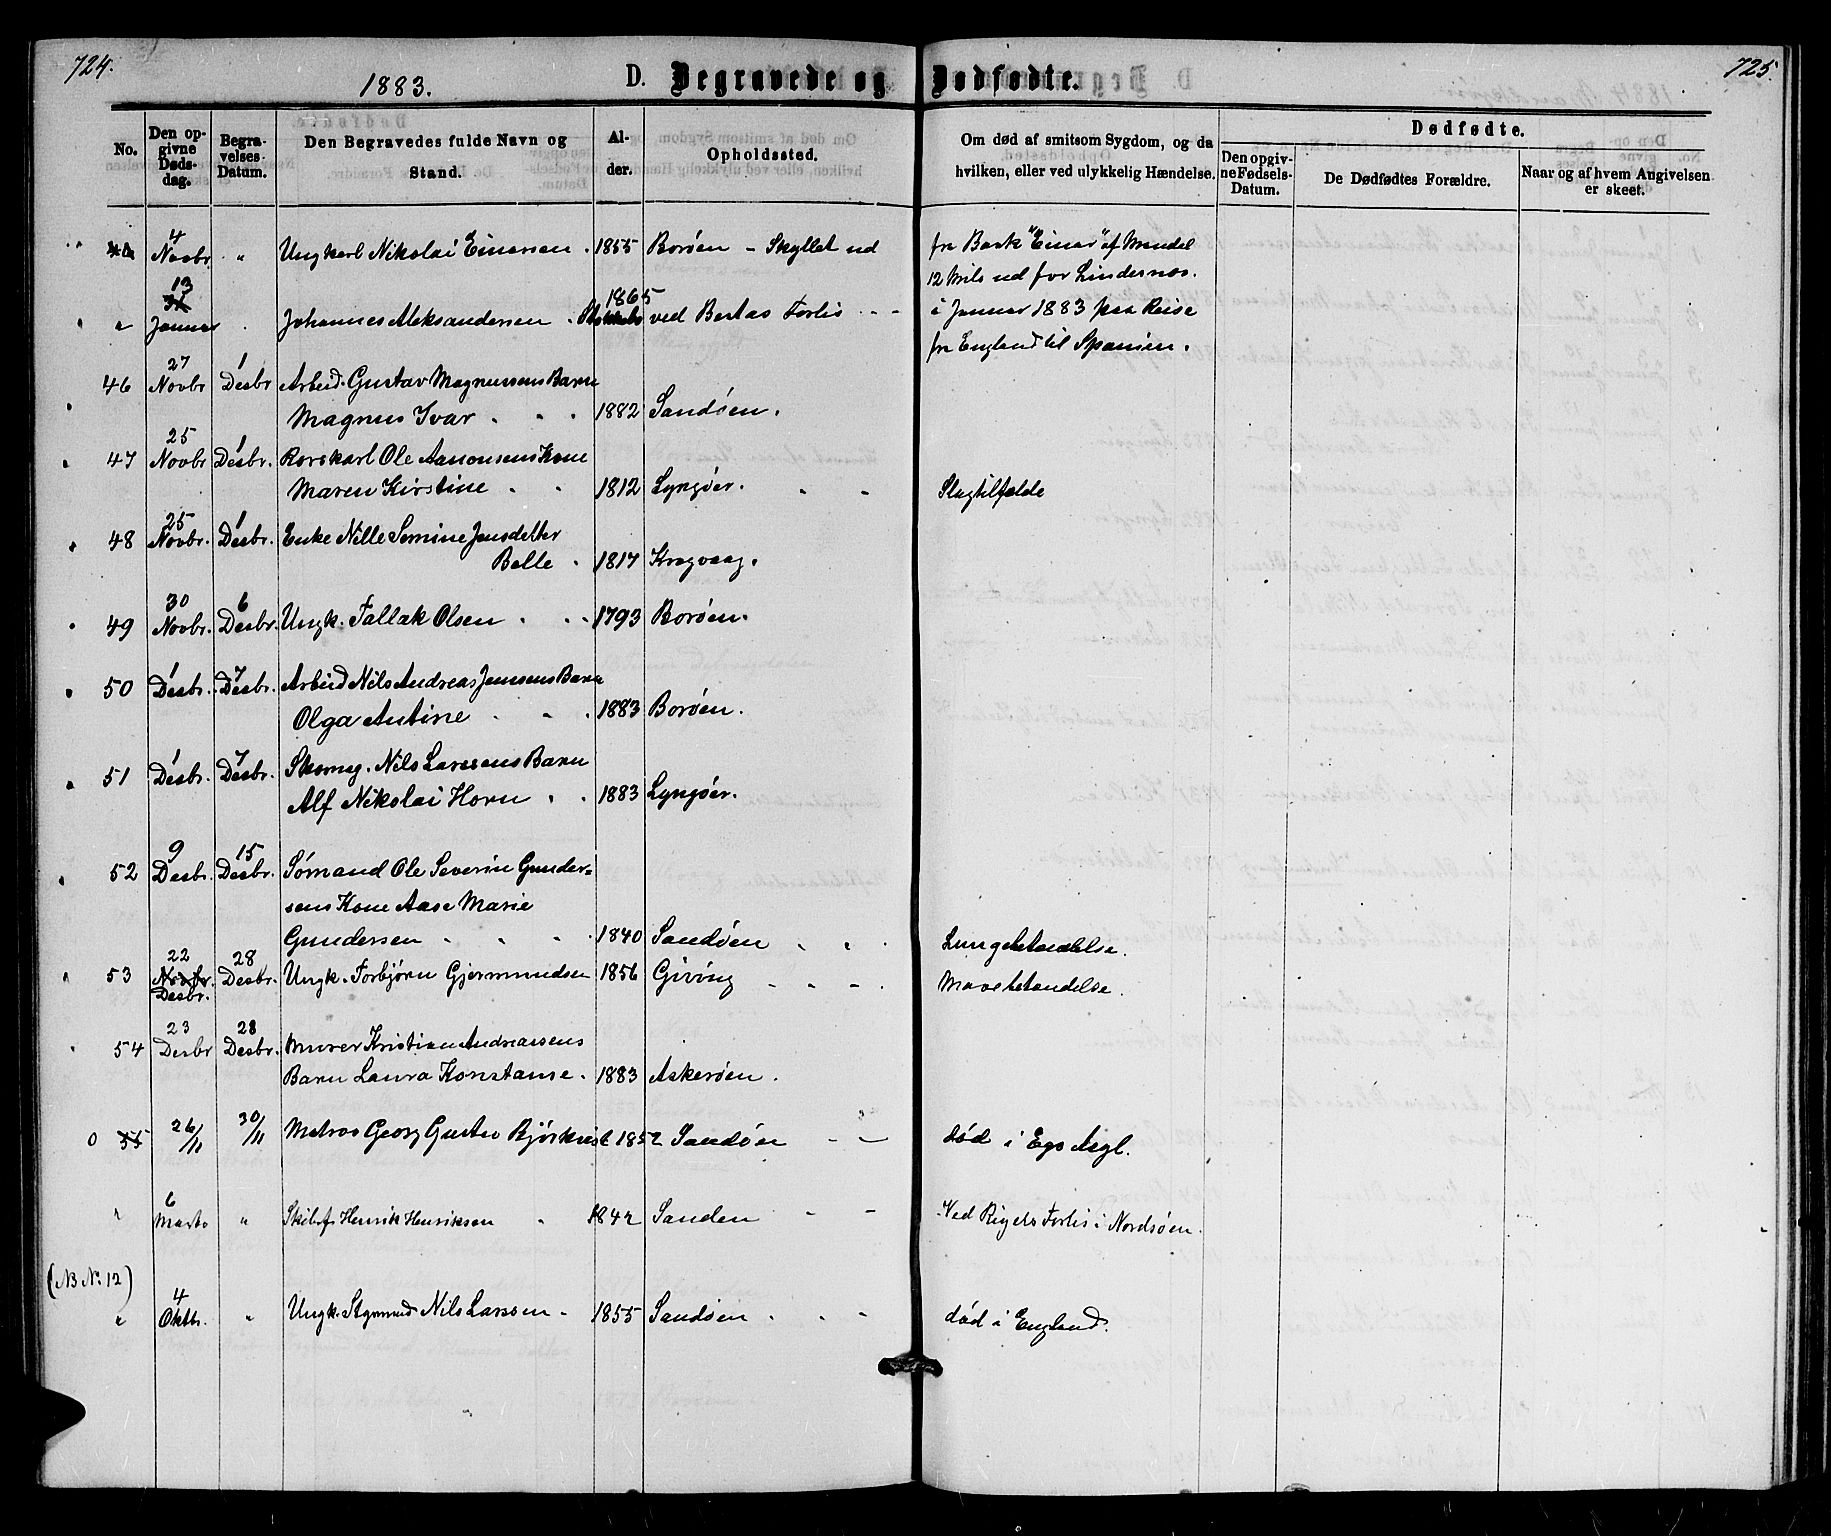 724.
725.
1883.
D. Begravede og Dødfødte.
No.
Den opgivne Dødsdag.
Begravelses-Datum.
Den Begravedes fulde Navn og Stand.
Alder.
Opholdssted.
Om død af smitsom Sygdom, og da hvilken, eller ved ulykkelig Hændelse.
Dødfødte.
Den opgivne Fødsels-Datum.
De Dødfødtes Forældre.
Naar og af hvem Angivelsen er skeet.
4 Novbr. " Ungkarl Nikolai Einersen . 1855 Borøen - Skyllet ud fra Bark "Einar" af Mandal
12 Mils ud for Lindernæs.
13 Januar Johannes Aleksandersen . 1865 ved Bertas Forlis - - i Januar 1883 paa Reise
fra England til Spanien.
46 27 Novbr 1 Desbr Arbeid. Gustav Magnussens Barn
Magnus Ivar . . . 1882 Sandøen.
47 25 Novbr 1 Desbr. Rorskarl Ole Aanonsens Kone
Maren Kirstine . . 1812 Lyngøer. . - Slagtilfælde
48 25 Novbr. 1 Desbr. Enke Nille Somine Jensdatter
Balle . 1817 Kragvaag.
49 30 Novbr. 6 Desbr. Ungk. Tallak Olsen . . . 1793 Borøen.
50 1 Desbr. 7 Desbr. Arbeid Nils Andreas Jenssens Barn
Olga Antine . . . 1883 Borøen.
51 1 Desbr. 7 Desbr. Skomg. Nils Larssens Barn
Alf Nikolai Horn . . 1883 Lyngøer.
52 9 Desbr. 15 Desbr. Sømand Ole Severin Gunder=
sens Kone Aase Marie
Gundersen . . . . 1840 Sandøen . . . Lungebetændelse.
53 22 Novbr. Desbr. 28 Desbr. Ungk. Torbjørn Gjermundsen 1856 Giving - - - . Mavebetændelse.
54 23 Desbr 28 Desbr. Murer Kristian Andreassens
Barn Laura Konstanse . 1883 Askerøen.
0 55 26/11 30/11 Matros Georg Gustav Bjørkvist 1852 Sandøen - - død i Ego Asyl.
" 6 Marts " Skibsf. Henrik Henriksen . 1842 Sanden - - Ved Rigels Forlis i Nordsøen.
(NB No. 12)
" 4 Oktbr. " Ungk. Nils Larssen - 1855 Sandøen . . - død i England.